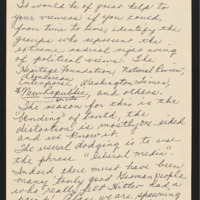 It would be of great help to
your viewers if you could,
from time to time, identify the
groups who represent the
extreme radical right wing
of political views. The
Heritage Foundation, National Review,
enterprise, Washington Times,
New Republic, and others.
The reason for this is the
"bending" of truth, the
distortion is mostly one sided
and we suspect.
The usual dodging is to use
the phrase "liberal media".
Indeed there must have been
many truly good German people
who really felt Hitler had a
we are spawning